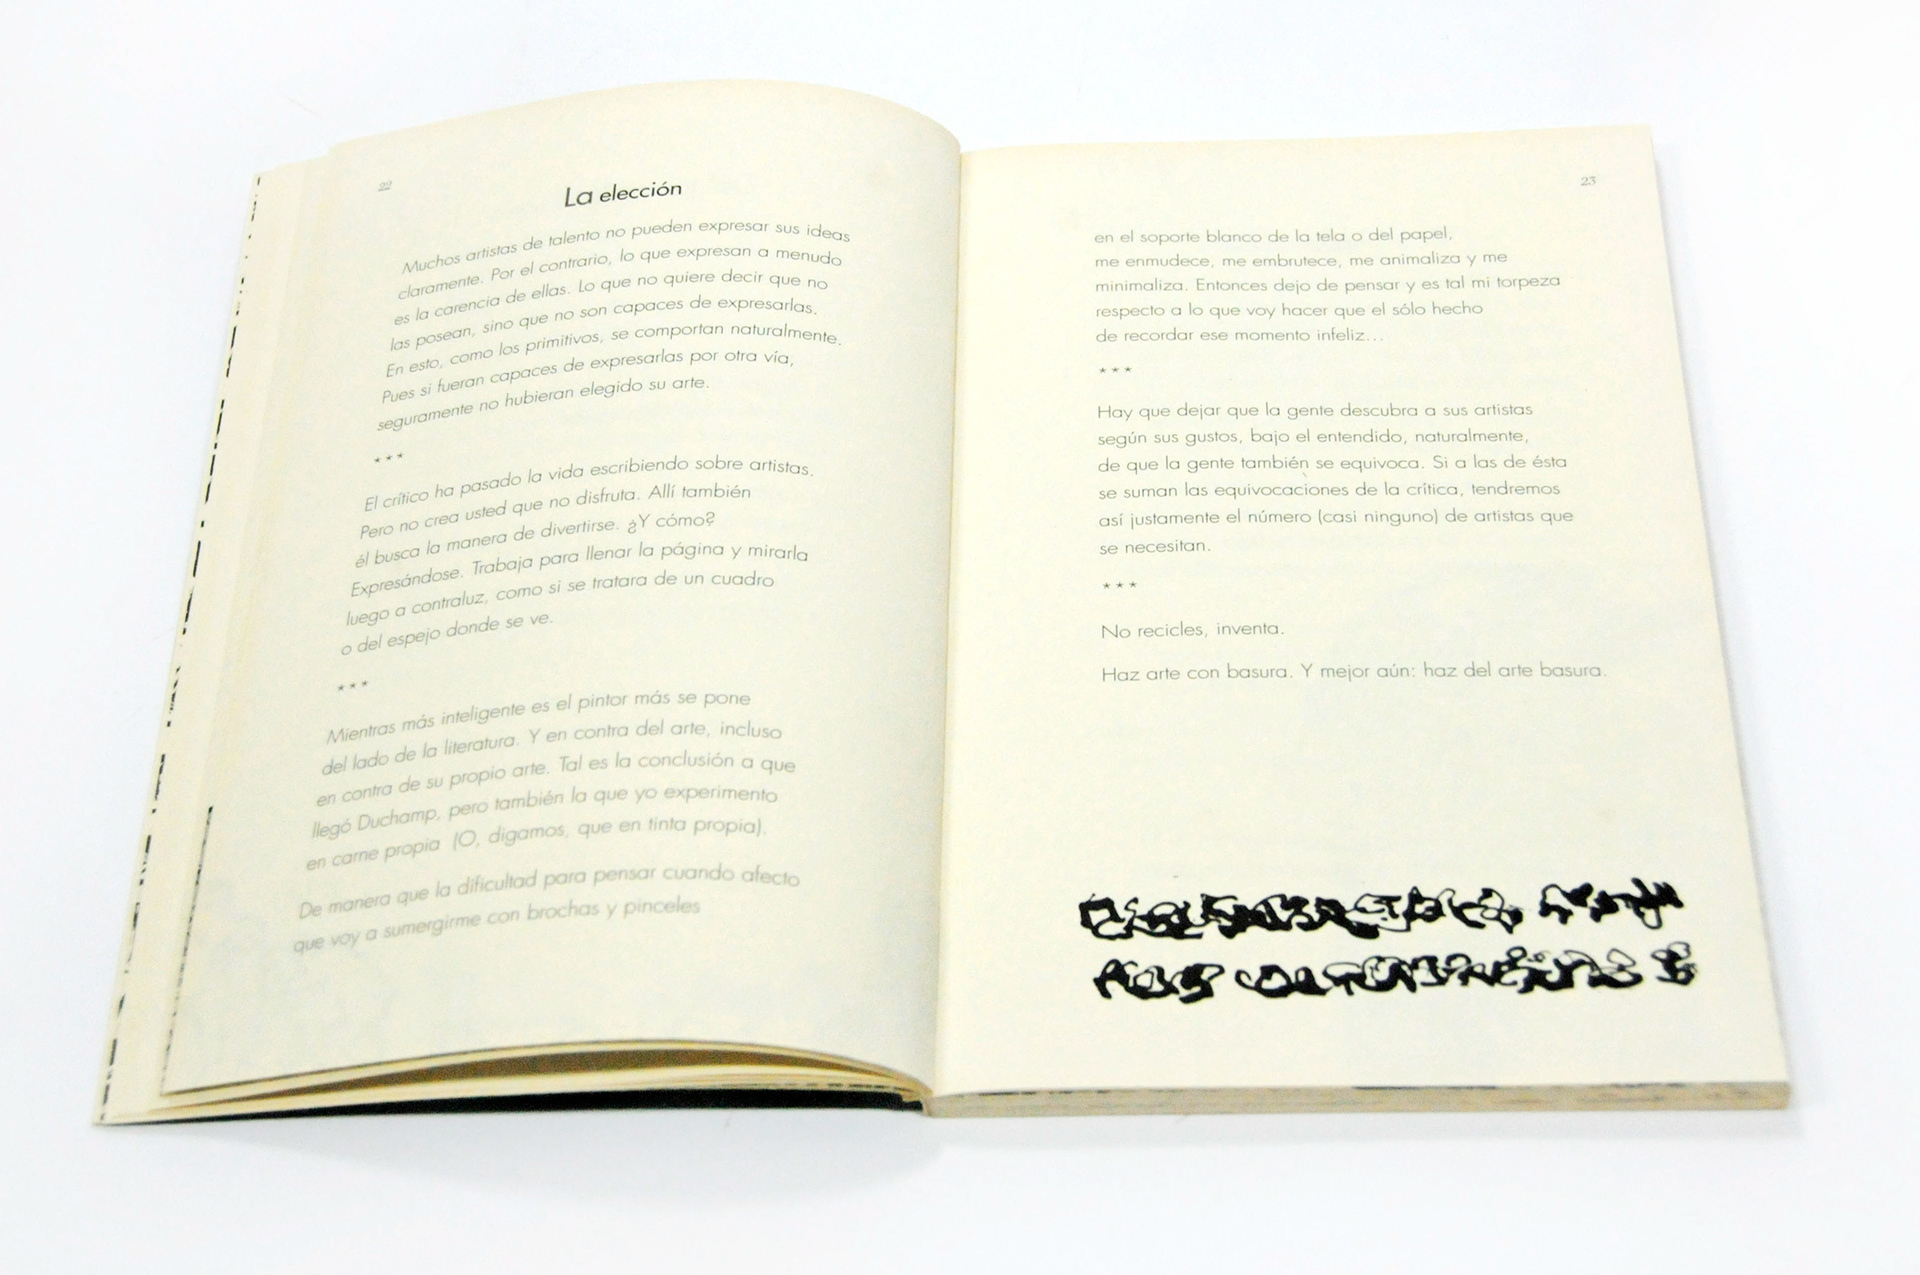 22
La elección
Muchos artistas de talento no pueden expresar sus ideas
claramente. Por el contrario, lo que expresan a menudo
es la carencia de ellas. Lo que no quiere decir que no
las posean, sino que no son capaces de expresarlas.
En esto, como los primitivos, se comportan naturalmente.
Pues si fueran capaces de expresarlas por otra vía,
seguramente no hubieran elegido su arte.
***
El crítico ha pasado la vida escribiendo sobre artistas.
Pero no crea usted que no disfruta. Allí también
él busca la manera de divertirse. ¿Y cómo?
Expresándose. Trabaja para llenar la página y mirarla
luego a contraluz, como si se tratara de un cuadro
o del espejo donde se ve.
***
Mientras más inteligente es el pintor más se pone
del lado de la literatura. Y en contra del arte, incluso
en contra de su propio arte. Tal es la conclusión a que
llegó Duchamp, pero también la que yo experimento
en carne propia (O, digamos, que en tinta propia).
De manera que la dificultad para pensar cuando afecto
que voy a sumergirme con brochas y pinceles
23
en el soporte blanco de la tela o del papel,
me enmudece, me embrutece, me animaliza y me
minimaliza. Entonces dejo de pensar y es tal mi torpeza
respecto a lo que voy hacer que el sólo hecho
de recordar ese momento infeliz...
***
Hay que dejar que la gente descubra a sus artistas
según sus gustos, bajo el entendido, naturalmente,
de que la gente también se equivoca. Si a las de ésta
se suman las equivocaciones de la crítica, tendremos
así justamente el número (casi ninguno) de artistas que
se necesitan.
***
No recicles, inventa.
Haz arte con basura. Y mejor aún: haz del arte basura.